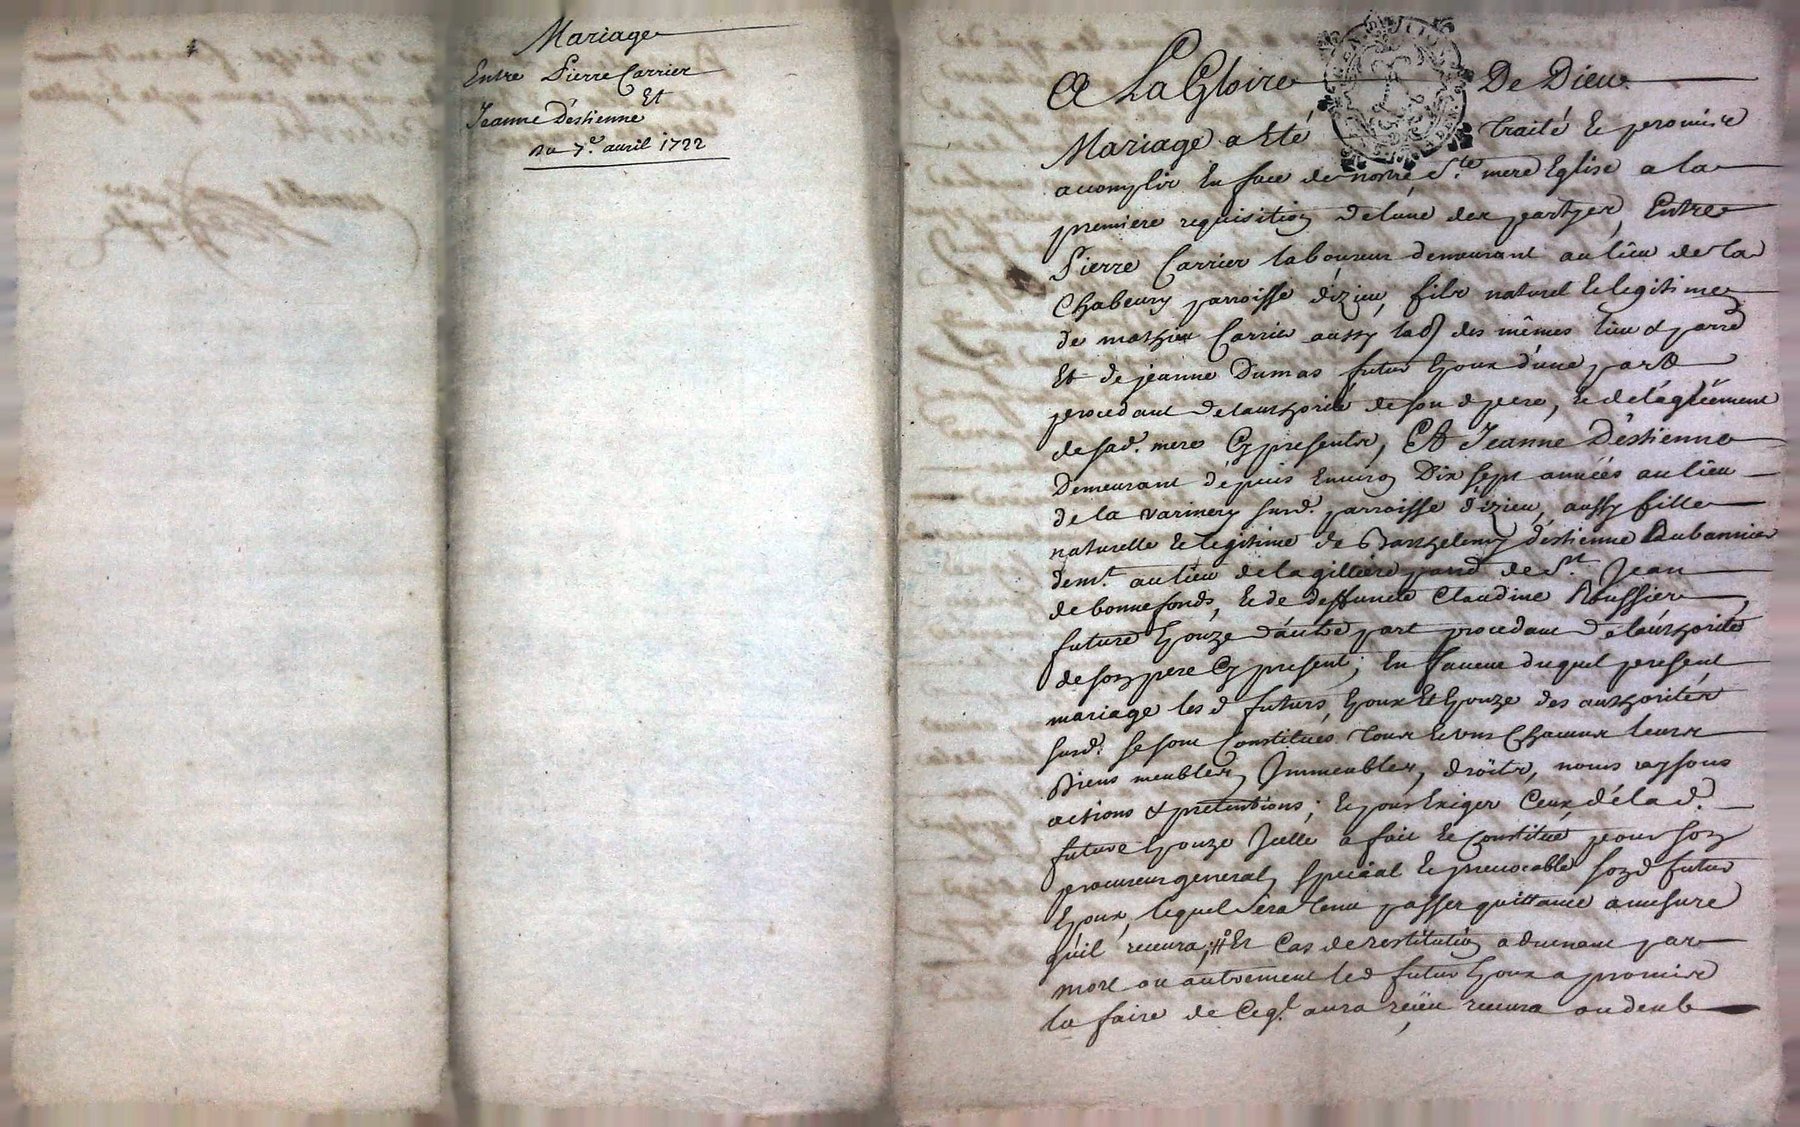 Mariage
Entre Pierre Carrier
Et
Jeanne Déstienne
Du 7e. avril 1722
A La Gloire De Dieu
Mariage a Eté traité & promis
accomplir En face de nostre Ste. mere Eglise a la
premiere requisition de lune des partyes, Entre
Pierre Carrier laboureur demeurant au lieu de la
Chabeury parroisse d'izieu, fils naturel & legitime
de mathieu Carrier aussy lab. des mêmes lieu & parre
Et de jeanne Dumas futur Epoux d'une part
procedant de lauthorité de son d. pere, & de l'agréement
de sad. mere Cy presents, Et Jeanne Déstienne
Demeurant dépuis Environ Dix sept années au lieu
de la varinery susd. parroisse d'izieu, aussy fille
naturelle & legitime de Barthelemy déstienne Rubannier
demt. au lieu de la gilliere parre de St. Jean
de bonnefonds, & de deffuncte Claudine Roussier
future Epouze d'autre part procedant de l'authorité
de son pere Cy present; En faveur duquel present
mariage les d. futurs Epoux Et Epouze des authorités
susd. se sont Constitués tous & uns Chacuns leurs
Biens meubles, Immeubles, droits, noms raisons
actions & pretentions; & pour Exiger Ceux dé lad.
future Epouze Icelle a fait & Constitué pour son
procureur general, special & irrevocable sond. futur
Epoux, lequel sera tenu passer quittance a mesure
qu'il recevra; Et Cas de restitution advenant par
mort ou autrement led. futur Epoux a promis
la faire de Ceql. aura reçeu recevra ou deub